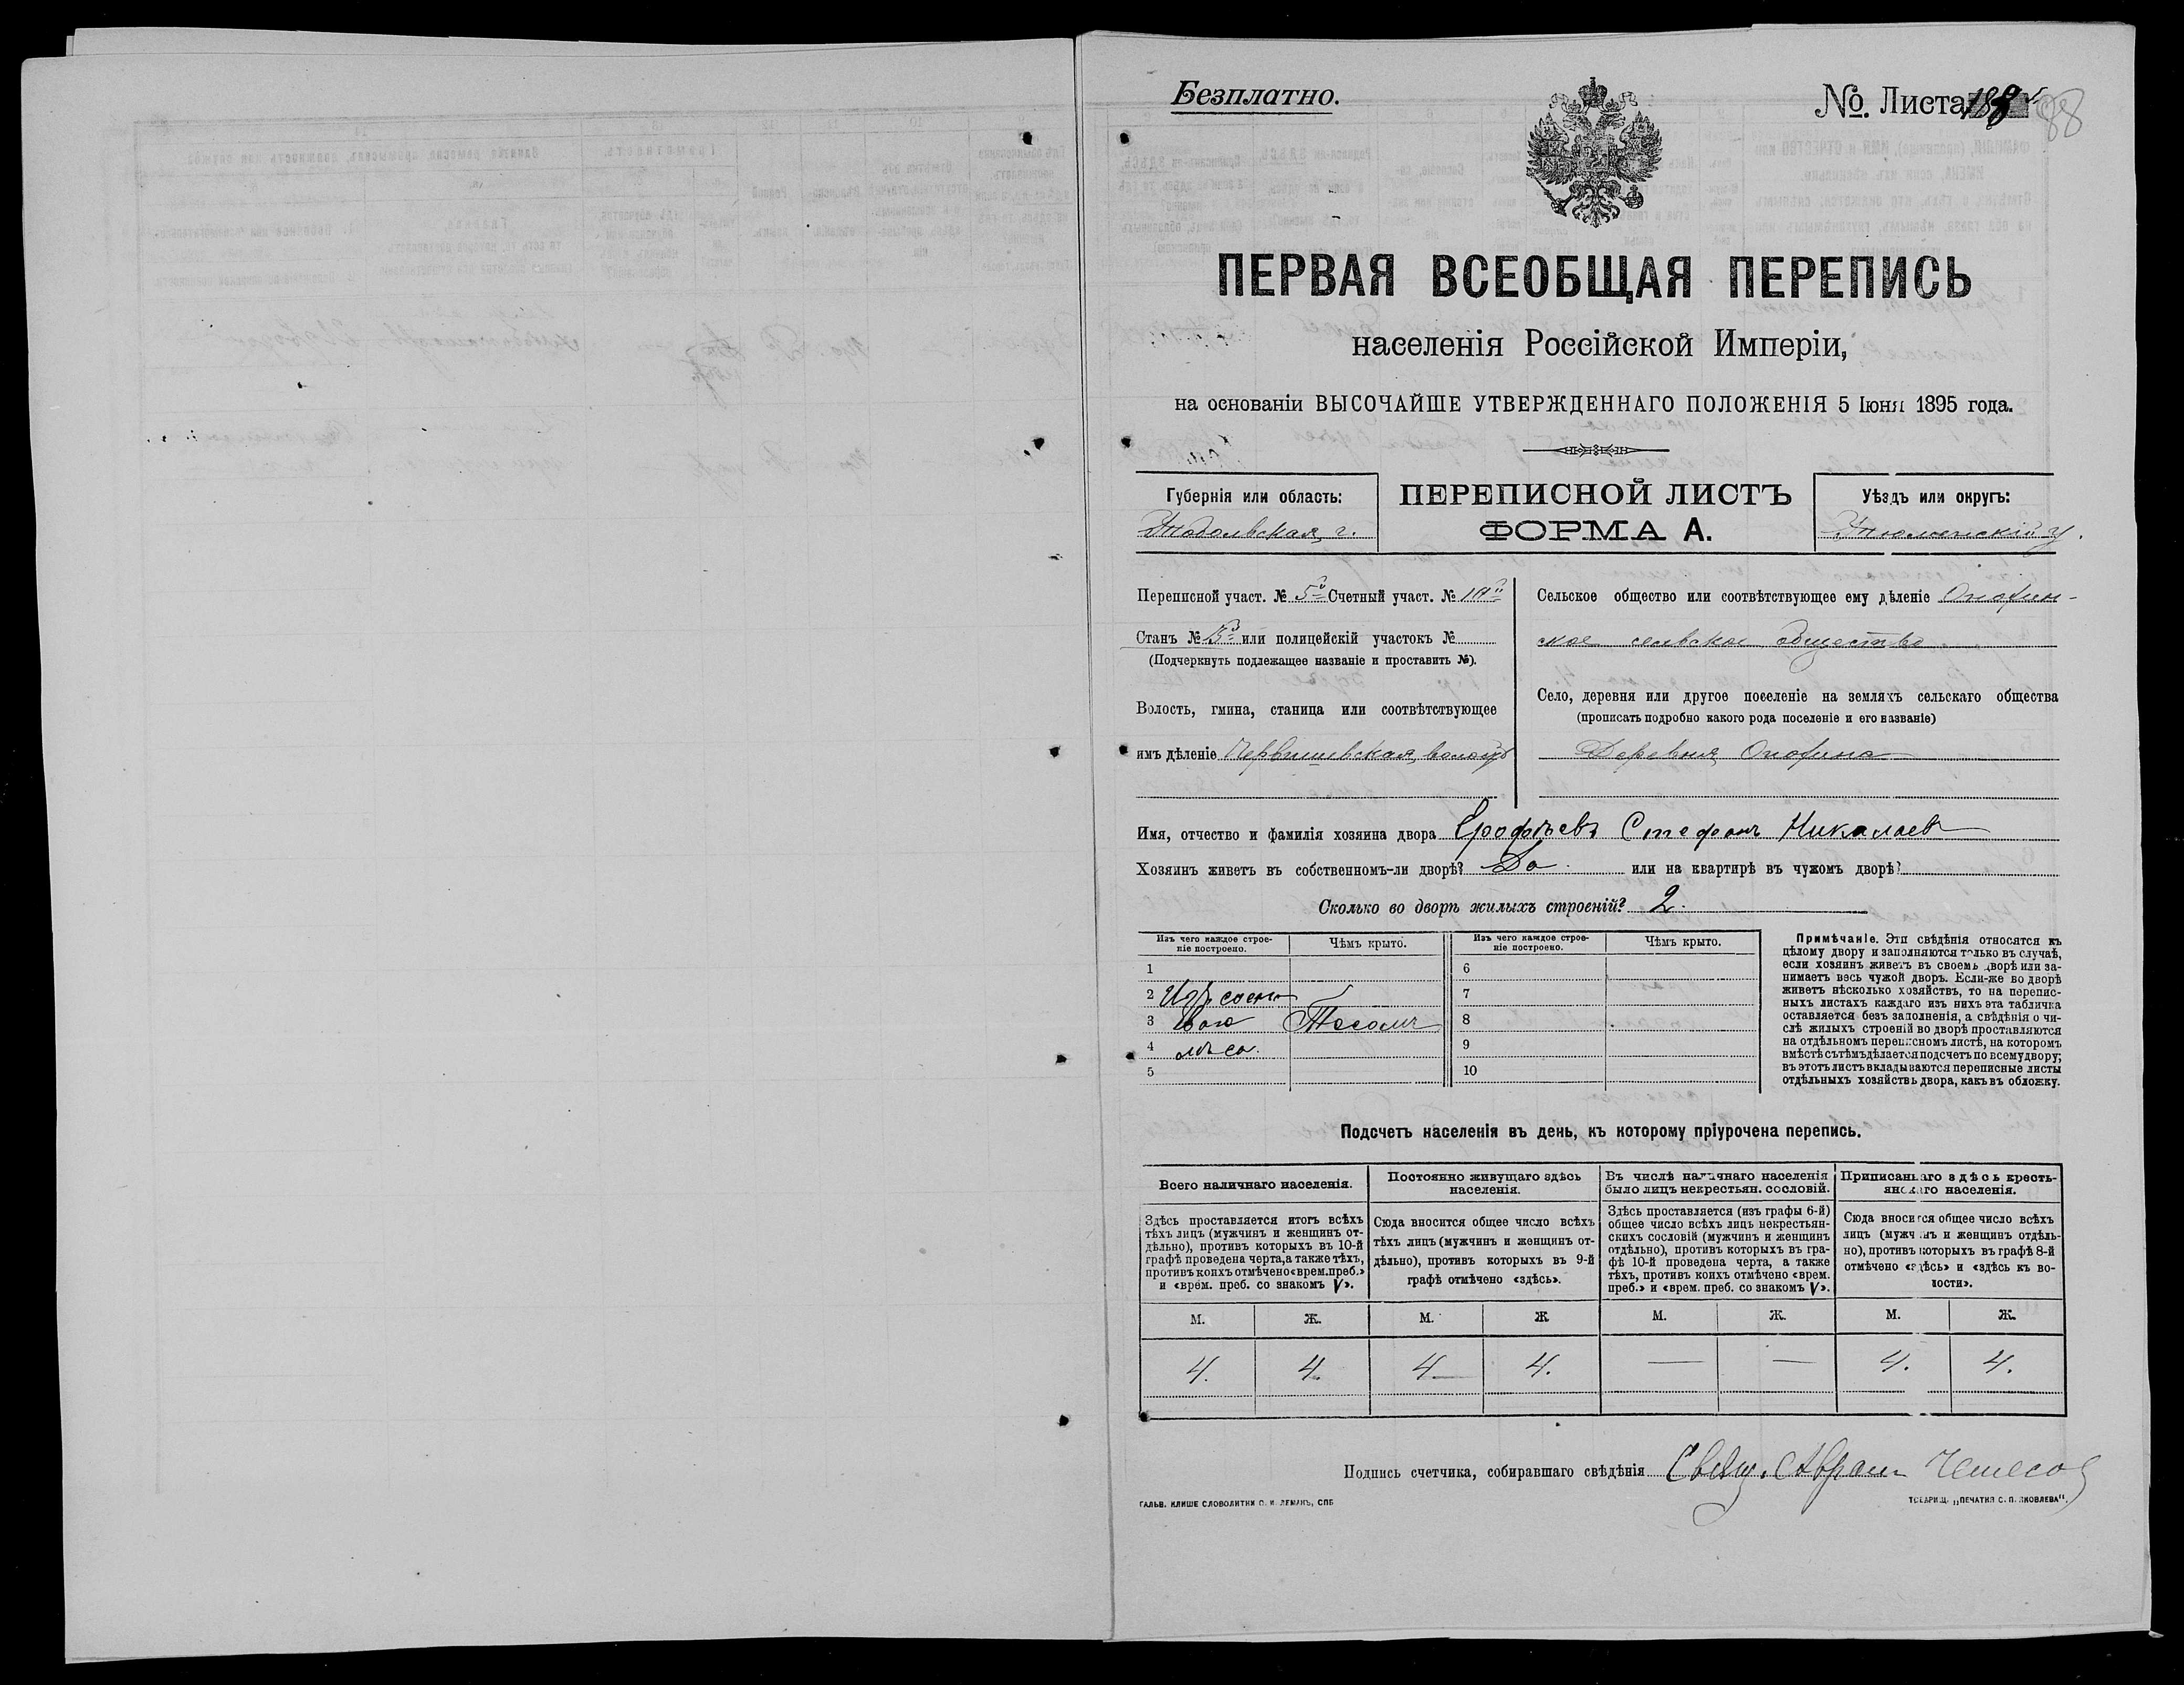 Безплатно.
№. Листа 188
88
ПЕРВАЯ ВСЕОБЩАЯ ПЕРЕПИСЬ
населенія Россійской Имперіи,
на основаніи ВЫСОЧАЙШЕ УТВЕРЖДЕННАГО ПОЛОЖЕНІЯ 5 Іюня 1895 года.
Губернія или область:
Тобольская г.
ПЕРЕПИСНОЙ ЛИСТЪ
ФОРМА А.
Уѣздъ или округъ:
Тюменскій у.
Переписной участ. № 5й Счетный участ. №
Станъ № или полицейскій участокъ №
(Подчеркнуть подлежащее названіе и проставить №).
Волость, гмина, станица или соотвѣтствующее
имъ дѣленіе Червишевская волость
Сельское общество или соотвѣтствующее ему дѣленіе Онохин-
ское сельское общество
Село, деревня или другое поселеніе на земляхъ сельскаго общества
(прописать подробно какого рода поселеніе и его названіе)
Деревня Онохина
Имя, отчество и фамилія хозяина двора Ерофѣевъ Стефанъ Николаев
Хозяинъ живетъ въ собственномъ-ли дворѣ? Да. или на квартирѣ въ чужомъ дворѣ?
Сколько во дворѣ жилыхъ строеній? 2.
Изъ чего каждое строе-
ніе построено.
Чѣмъ крыто.
Изъ чего каждое строе-
ніе построено.
Чѣмъ крыто.
1
6
2 Изъ сосно
7
3 ваго Тесомъ
8
4 лѣса.
9
5
10
Примѣчаніе. Эти свѣдѣнія относятся къ
цѣлому двору и заполняются только въ случаѣ,
если хозяинъ живетъ въ своемъ дворѣ или за-
нимаетъ весь чужой дворъ. Если-же во дворѣ
живетъ нѣсколько хозяйствъ, то на перепис-
ныхъ листахъ каждаго изъ нихъ эта табличка
оставляется безъ заполненія, а свѣдѣнія о чи-
слѣ жилыхъ строеній во дворѣ проставляются
на отдѣльномъ переписномъ листѣ, на которомъ
вмѣстѣ съ тѣмъ дѣлается подсчетъ по всему двору;
въ этотъ листъ вкладываются переписные листы
отдѣльныхъ хозяйствъ двора, какъ въ обложку.
Подсчетъ населенія въ день, къ которому пріурочена перепись.
Всего наличнаго населенія.
Постоянно живущаго здѣсь
населенія.
Въ числѣ наличнаго населенія
было лицъ некрестьян. сословій.
Приписаннаго здѣсь кресть-
янскаго населенія.
Здѣсь проставляется итогъ всѣхъ
тѣхъ лицъ (мужчинъ и женщинъ от-
дѣльно), противъ которыхъ въ 10-й
графѣ проведена черта, а также тѣхъ,
противъ коихъ отмѣчено «врем. преб.»
и «врем. преб. со знакомъ V».
Сюда вносится общее число всѣхъ
тѣхъ лицъ (мужчинъ и женщинъ от-
дѣльно), противъ которыхъ въ 9-й
графѣ отмѣчено «здѣсь».
Здѣсь проставляется (изъ графы 6-й)
общее число всѣхъ лицъ некрестьян-
скихъ сословій (мужчинъ и женщинъ
отдѣльно), противъ которыхъ въ гра-
фѣ 10-й проведена черта, а также
тѣхъ, противъ коихъ отмѣчено «врем.
преб.» и «врем. преб. со знакомъ V».
Сюда вносится общее число всѣхъ
лицъ (мужчинъ и женщинъ отдѣль-
но), противъ которыхъ въ графѣ 8-й
отмѣчено «здѣсь» и «здѣсь къ во-
лости».
М. Ж. М. Ж М. Ж. М. Ж.
4. 4. 4 4. — — 4. 4.
Подпись счетчика, собиравшаго свѣдѣнія Свящ. Авраам
ГАЛЬВ. КЛИШЕ СЛОВОЛИТНИ О. И. ЛЕМАНЪ, СПБ
ТОВАРИЩ. „ПЕЧАТНЯ С. П. ЯКОВЛЕВА“.